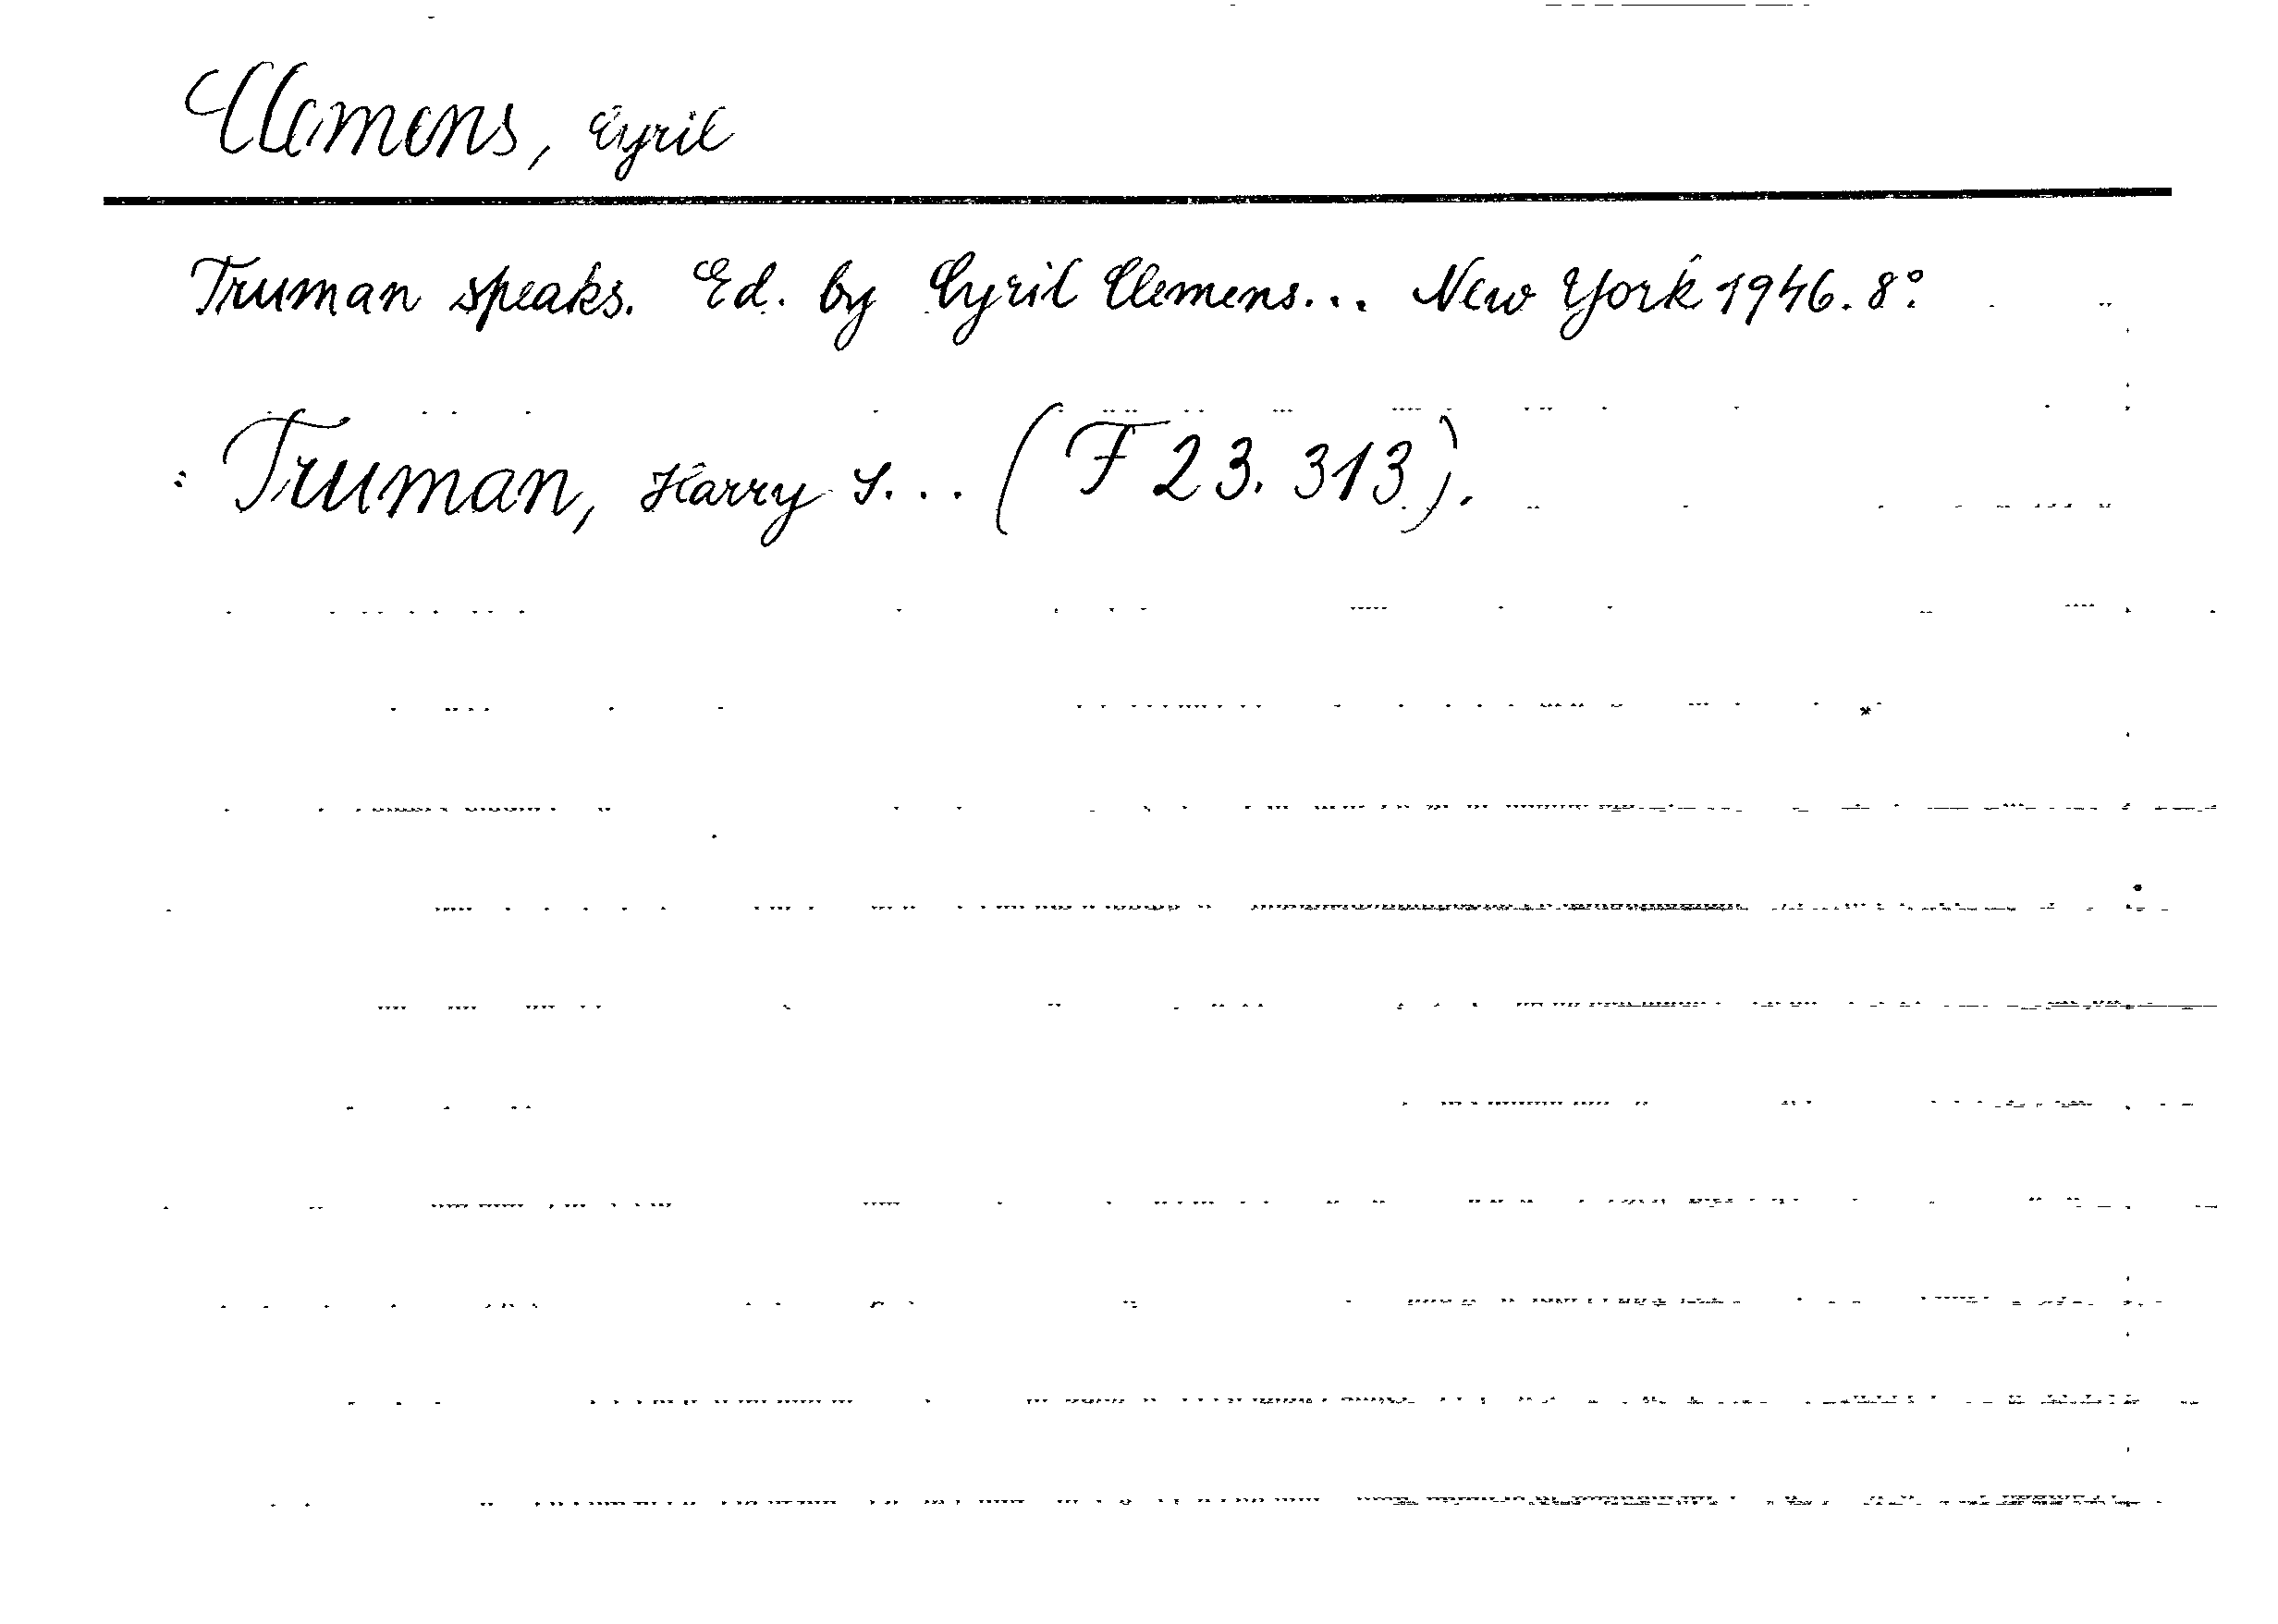 Clemens, Cyril
Truman speaks. Ed. by Cyril Clemens... New York 1946. 8°
: Truman, Harry S... (F 23. 313).